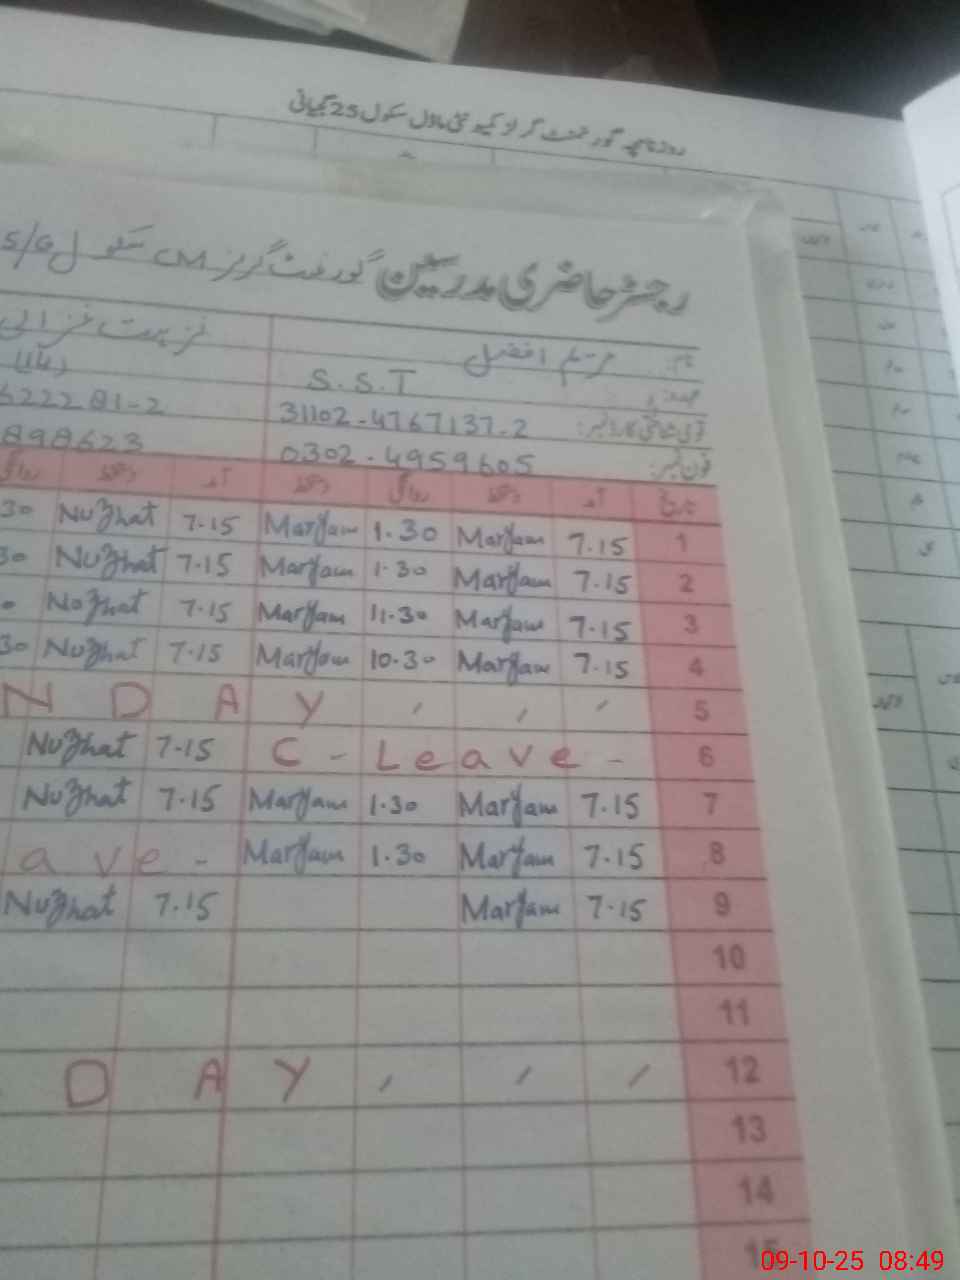 روزنامچہ گورنمنٹ گرلز کمیونٹی ماڈل سکول 25 گجیانی
رجسٹر حاضری مدرسین گورنمنٹ گرلز CM سکول 5/G
نام: مریم افضل نزہت غزالی
عہدہ: S.S.T
قومی شناختی کارڈ نمبر: 31102-4767137-2 622281-2
فون نمبر: 0302-4959605 898623
تاریخ آمد دستخط روانگی دستخط آمد دستخط روانگی
1 7.15 Maryam 1.30 Maryam 7.15 Nuzhat 30
2 7.15 Maryam 1.30 Maryam 7.15 Nuzhat 30
3 7.15 Maryam 11.30 Maryam 7.15 Nuzhat
4 7.15 Maryam 10.30 Maryam 7.15 Nuzhat 30
N D A Y , , , 5
Nuzhat 7.15 C - Leave - 6
7 7.15 Maryam 1.30 Maryam 7.15 Nuzhat
8 7.15 Maryam 1.30 Maryam ave -
9 7.15 Maryam 7.15 Nuzhat
10
11
D A Y , , , 12
13
14
15
09-10-25 08:49